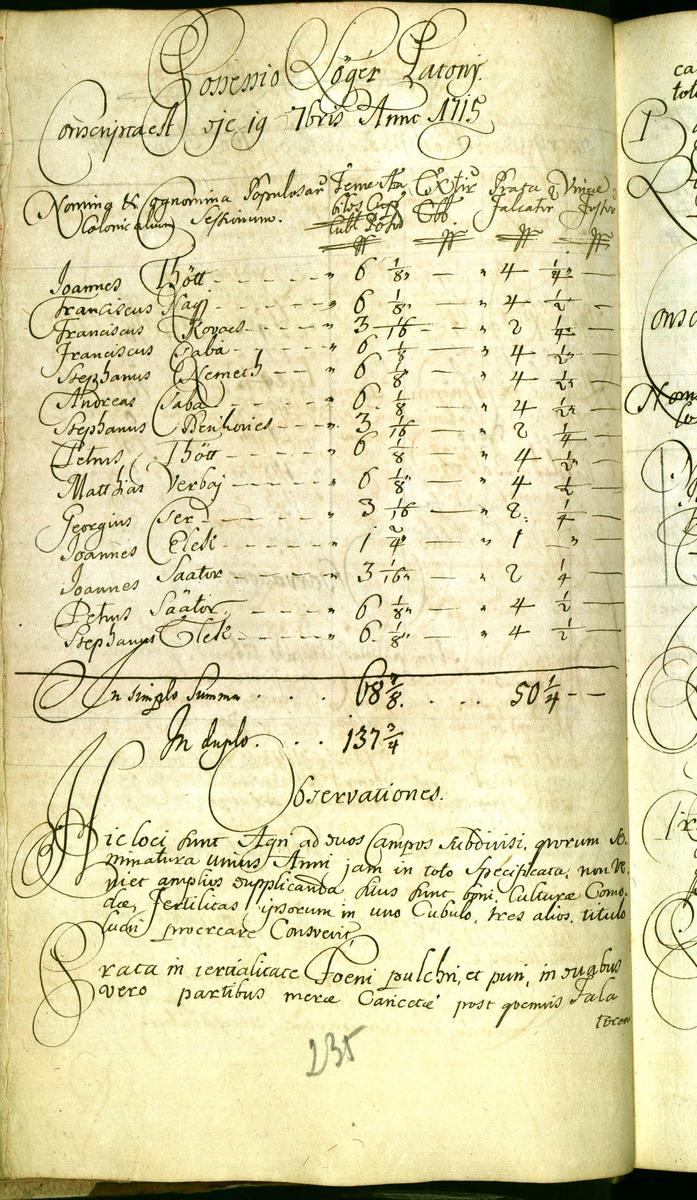 Possessio Lögér Patony.
Conscripta est die 19 7bris Anno 1715
Nomina & Cognomina Populosarū Terrae Extir Prata Vineae
Colonicalium Sessionum. Falcator Fossor
ff ff ff ff
Joannes Thött - - - - " 6 1/8" — " 4 1/4" —
Franciscus Nagj - - - - " 6 1/8 — " 4 1/2" —
Franciscus Kovacs - - - " 3 1/16 — " 2 1/4" —
Franciscus Csaba - - - - " 6 1/8 — " 4 1/2" —
Stephanus Nemeth - - - " 6 1/8" — " 4 1/2" —
Andreas Csaba - - - - " 6 1/8 — " 4 1/2" —
Stephanus Benkovics - - - " 3 1/16 — " 2 1/4 —
Petrus Thött - - - - " 6 1/8 — " 4 1/2" —
Matthias Verbaj - - - - " 6 1/8" — " 4 1/2 —
Georgius Cser - - - - " 3 1/16 — " 2. 1/4 —
Joannes Elek - - - - " 1 2/4" — " 1 — " —
Joannes Saator - - - - " 3 1/16" — " 2 1/4 —
Petrus Säator - - - - " 6 1/8" — " 4 1/2 —
Stephanus Elek - - - - " 6. 1/8" — " 4 1/2 —
In simplo Summa . . . . 68 7/8. . . . 50 1/4 - -
In duplo . . . . 137 3/4
Observationes.
Hic loci sunt Agri ad duos Campos subdivisi, quorum Se-
minatura unius Anni jam in toto Specificata, non ve-
niet amplius dupplicanda hius sunt bonj, Culturae Como-
dae, Fertilitas ipsorum in uno Cubulo, tres alios, titulo
lucri procreare Consvevit,
Prata in tertialitate Foeni pulchri, et puri, in duabus
vero partibus merae Caricetae post quemvis Falca
torem
235